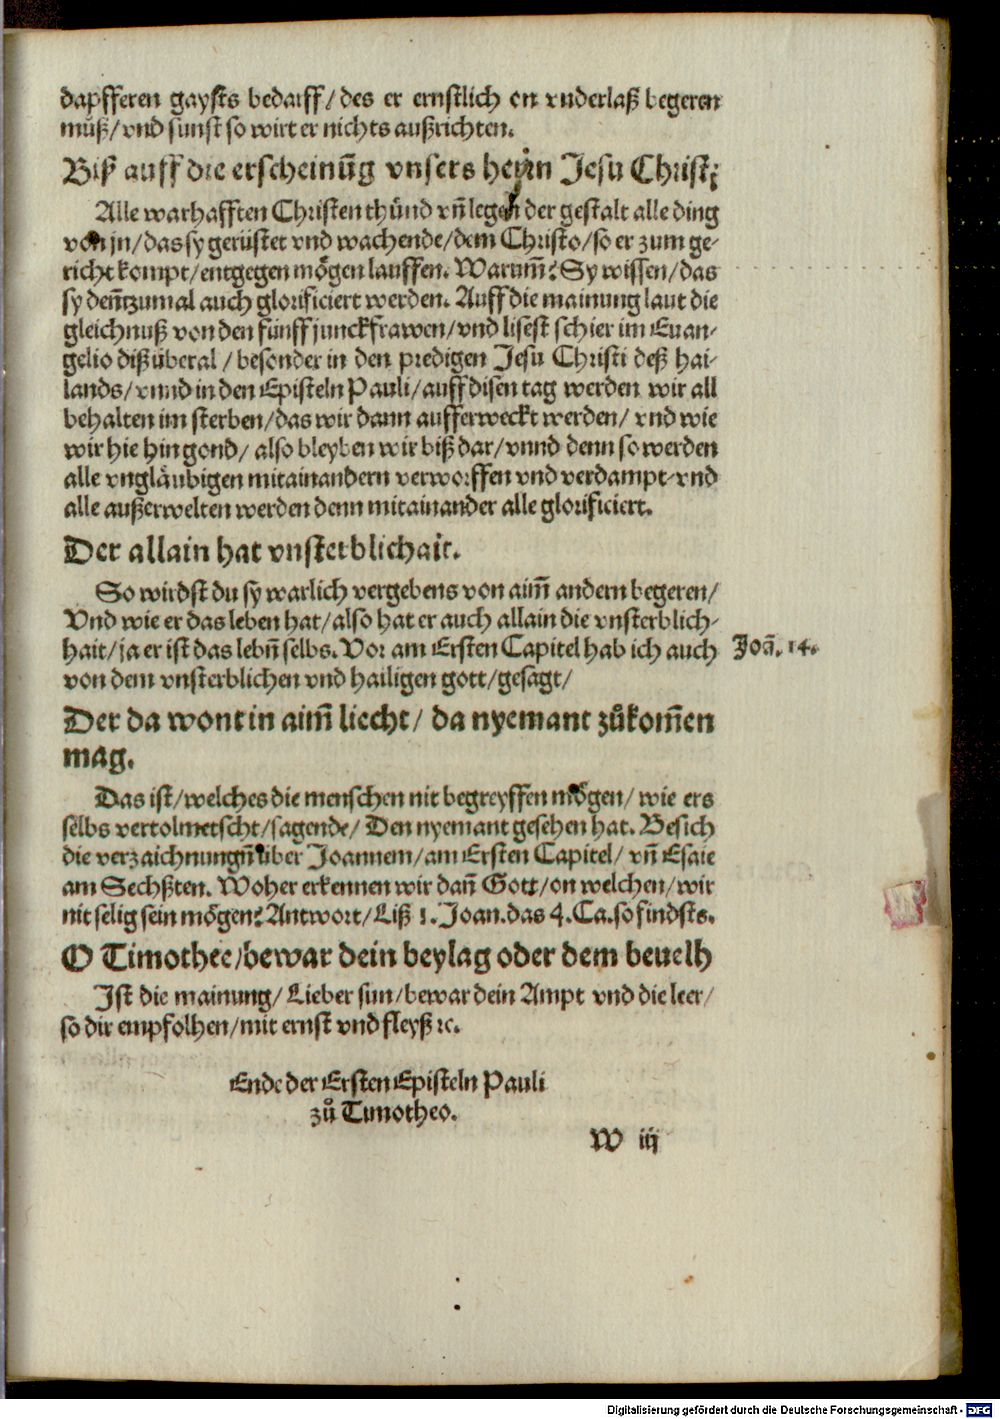 dapfferen gaysts bedarff/ des er ernstlich on vnderlaß begeren
muͦß/ vnd sunst so wirt er nichts außrichten.
Biß auff die erscheinūg vnsers heryn Jesu Christi
Alle warhafften Christen thuͤnd vn̄ legen der gestalt alle ding
von jn/ das sy gerüstet vnd wachende/ dem Christo/ so er zum ge-
richt kompt/ entgegen moͤgen lauffen. Warum̄? Sy wissen/ das
sy den̄zumal auch glorificiert werden. Auff die mainung laut die
gleichnuß von den fünff junckfrawen/ vnd lisest schier im Euan-
gelio diß überal / besonder in den predigen Jesu Christi deß hai-
lands/ vnnd in den Episteln Pauli/ auff disen tag werden wir all
behalten im sterben/ das wir dann aufferweckt werden/ vnd wie
wir hie hin gond/ also bleyben wir biß dar/ vnnd denn so werden
alle vnglaͤubigen mitainandern verworffen vnd verdampt/ vnd
alle außerwelten werden denn mitainander alle glorificiert.
Der allain hat vnsterblichait.
So wirdst du sy warlich vergebens von aim̄ andern begeren/
Vnd wie er das leben hat/ also hat er auch allain die vnsterblich-
hait/ ja er ist das lebn̄ selbs. Vor am Ersten Capitel hab ich auch
Joā. 14.
von dem vnsterblichen vnd hailigen gott/ gesagt/
Der da wont in aim̄ liecht/ da nyemant zuͦkom̄en
mag.
Das ist/ welches die menschen nit begreyffen moͤgen/ wie ers
selbs vertolmetscht/ sagende/ Den nyemant gesehen hat. Besich
die verzaichnungn̄ über Joannem/ am Ersten Capitel/ vn̄ Esaie
am Sechßten. Woher erkennen wir dan̄ Gott/ on welchen/ wir
nit selig sein moͤgen? Antwort/ Liß 1. Joan. das 4. Ca. so findsts.
O Timothee/ bewar dein beylag oder dem beuelh
Ist die mainung/ Lieber sun/ bewar dein Ampt vnd die leer/
so dir empfolhen/ mit ernst vnd fleyß ꝛc.
Ende der Ersten Episteln Pauli
zuͦ Timotheo.
W iij
Digitalisierung gefördert durch die Deutsche Forschungsgemeinschaft - DFG